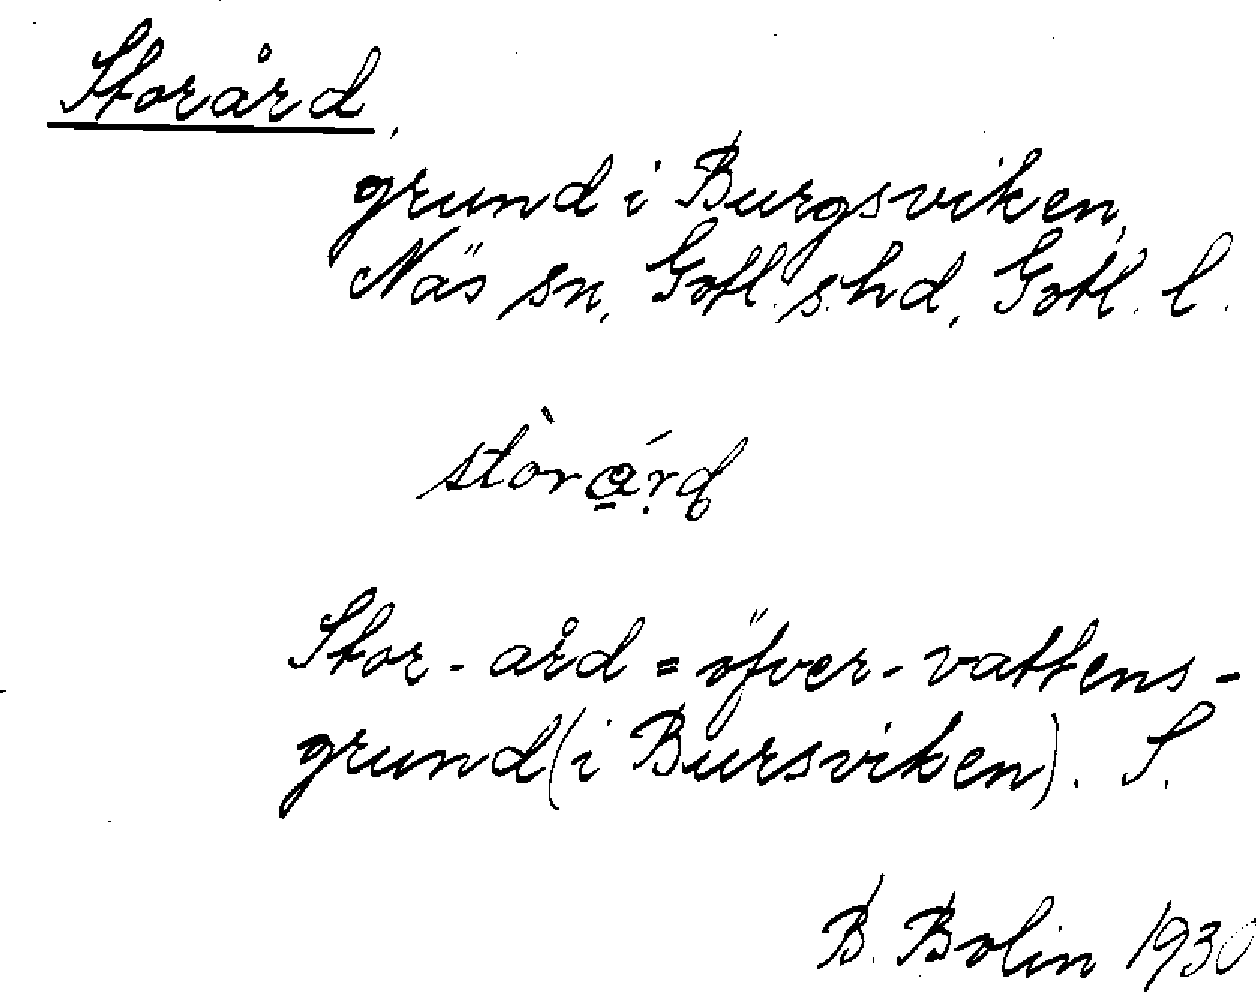 Storård,
grund i Burgsviken,
Näs sn, Gotl. s. hd, Gotl. l.
Stor-ård = öfver-vattens-
grund (i Bursviken). S.
B. Bolin 1930